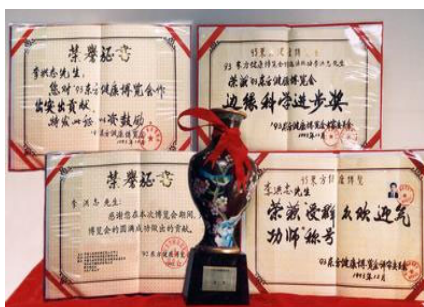 荣誉证书
李洪志先生:
您对'93东方健康博览会作
出突出贡献,
特发此证 以资鼓励。
'93东方健康博览会
1993年12月
93东方健康博览会
李洪志先生
荣获'93东方健康博览会
边缘科学进步奖
'93东方健康博览会
1993年12月
荣誉证书
李洪志 先生:
感谢您在本次博览会期间,
博览会的圆满成功做出的贡献。
'92东方健康博览会
93东方健康博览
李洪志先生
荣获受群众欢迎气
功师称号
93东方健康博览会评审委员会
1993年12月